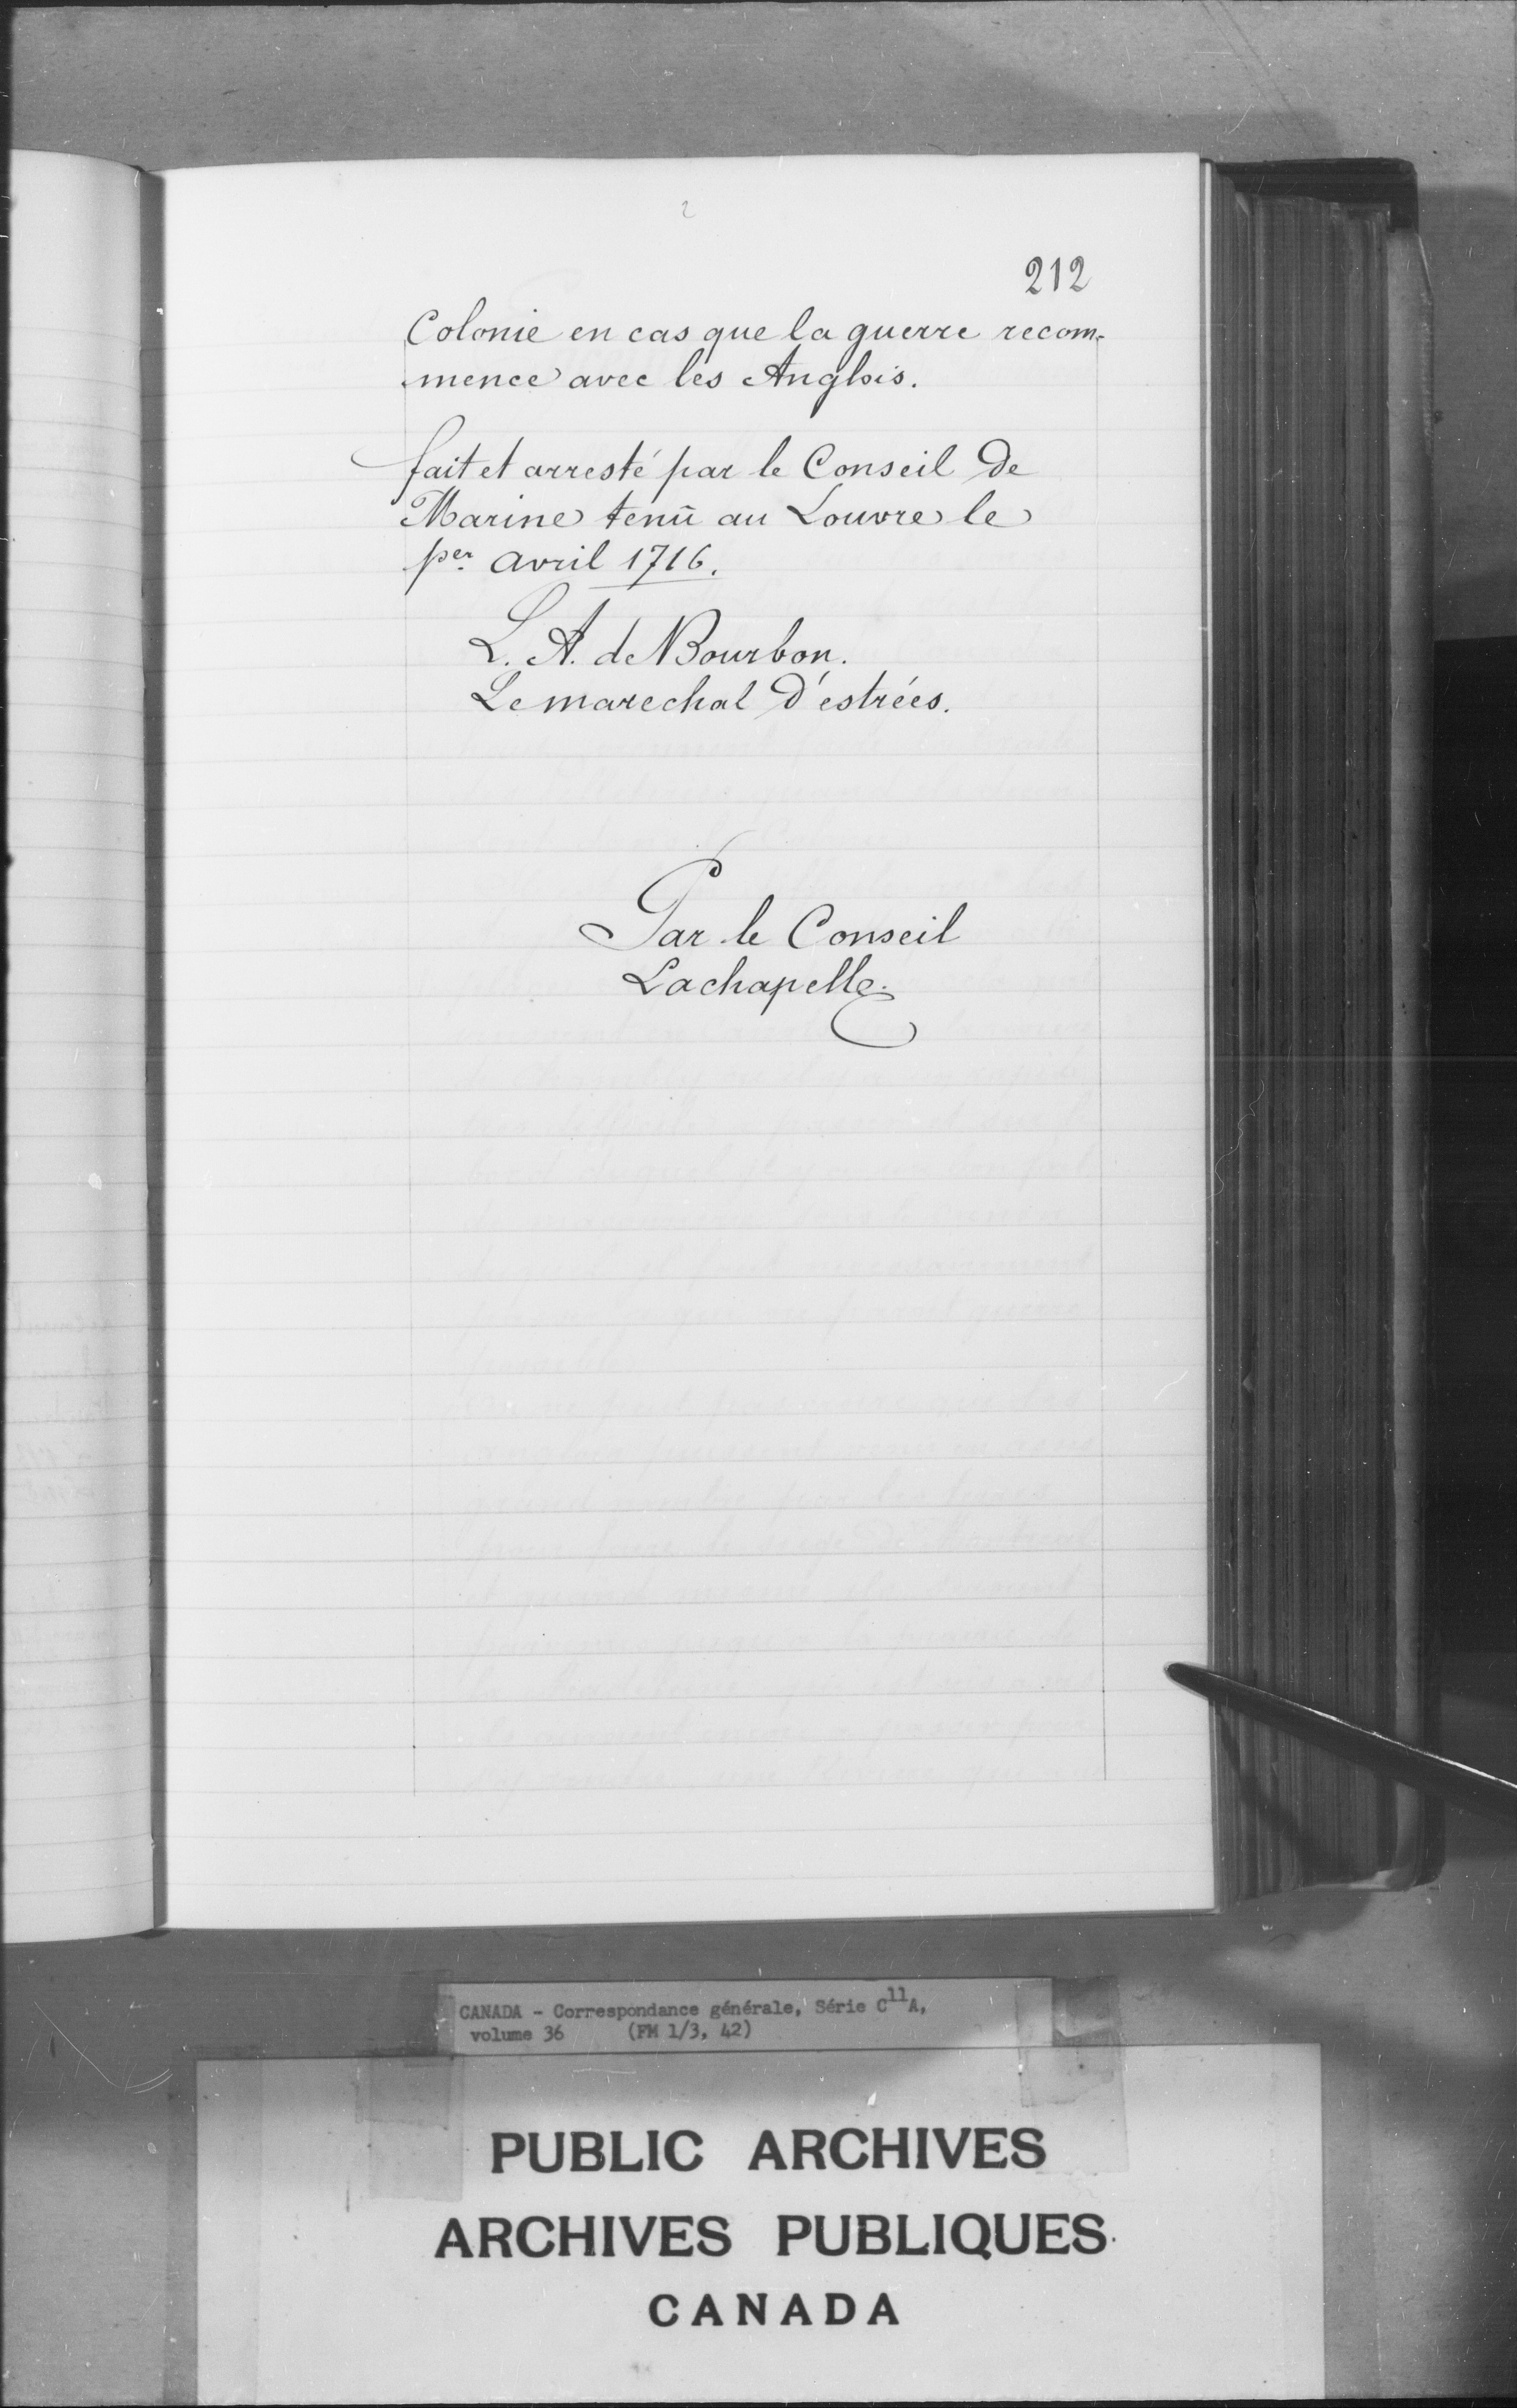 212
Colonie en cas que la guerre recom-
mence avec les Anglois.
fait et arresté par le Conseil De
Marine tenû au Louvre le
per. avril 1716.
L. A. de Bourbon.
Le marechal D'estrées.
Par le Conseil
Lachapelle.
CANADA - Correspondance générale, Série C11A,
volume 36 (FM 1/3, 42)
PUBLIC ARCHIVES
ARCHIVES PUBLIQUES
CANADA